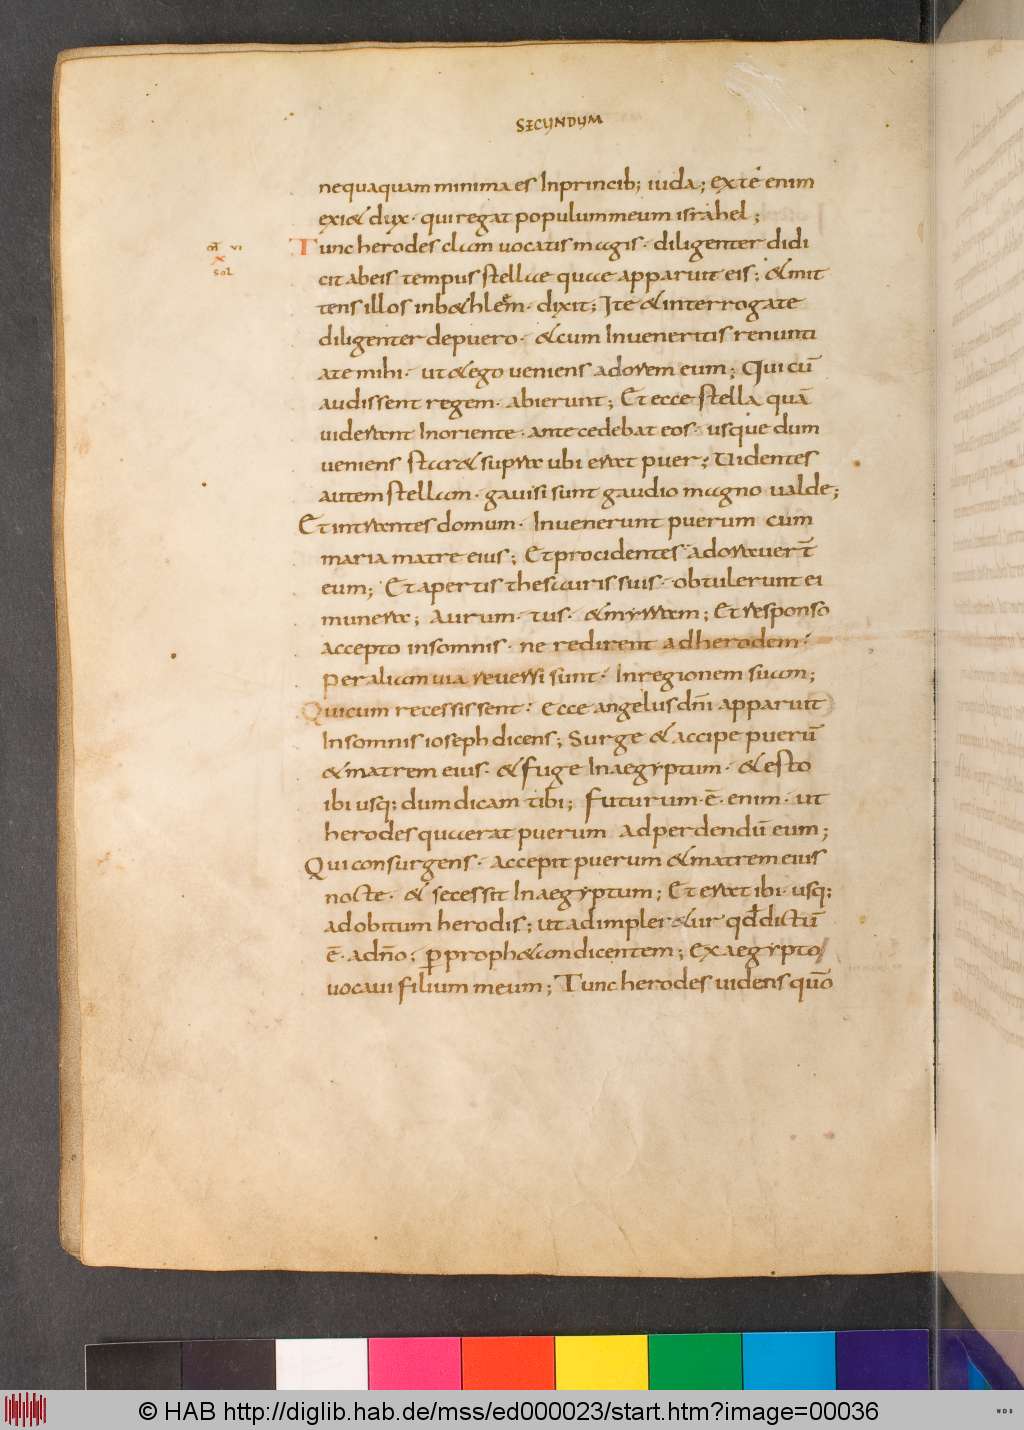 SECUNDUM
nequaquam minima es Inprincib; iuda; exte enim
exi& dux· qui regat populum meum israhel;
mt vi
x
sol
Tunc herodes clam uocatis magis· diligenter didi
cit abeis tempus stellae quae apparuit eis; & mit
tens illos inb&hlem· dixit; Ite & interrogate
diligenter depuero· & cum Inueneritis renunti
ate mihi· ut & ego ueniens adorem eum; Qui cū
audissent regem· abierunt; Et ecce stella quā
uiderant Inoriente· antecedebat eos· usque dum
ueniens star& supra ubi erat puer; Uidentes
autem stellam· gauisi sunt gaudio magno ualde;
Et intrantes domum· Inuenerunt puerum cum
maria matre eius; Et procidentes adorauert̄
eum; Et apertis thesauris suis· obtulerunt ei
munera; Aurum· tus· & myrram; Et responso
accepto insomnis· ne redirent ad herodem·
per aliam uia reuersi sunt· Inregionem suam;
Qui cum recessissent· ecce angelus dn̄i apparuit
Insomnis ioseph dicens; Surge & accipe puerū
& matrem eius· & fuge Inaegyptum· & esto
ibi usq; dum dicam tibi; Futurum· ē· enim· ut
herodes quaerat puerum Adperdendū eum;
Qui consurgens· accepit puerum & matrem eius
nocte· & secessit Inaegyptum; Et erat ibi· usq;
ad obitum herodis; ut adimpler&ur qd̄ dictū
ē· adn̄o; p̱ proph&am dicentem; Ex aegypto
uocaui filium meum; Tunc herodes uidens quō
© HAB http://diglib.hab.de/mss/ed000023/start.htm?image=00036